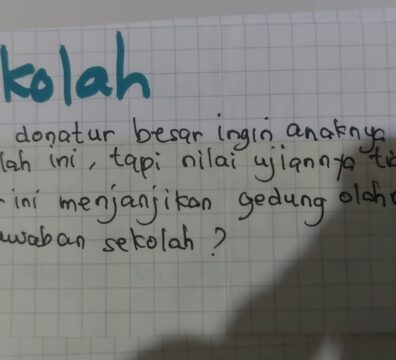 kolah
donatur besar ingin anaknya
lah ini, tapi nilai ujiannya
ini menjanjikan gedung
waban sekolah?